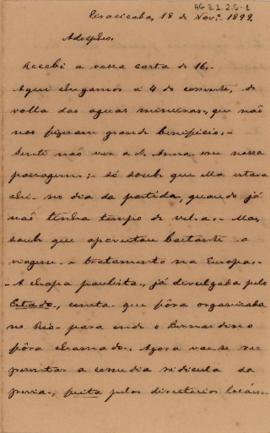 AG 2.1.2.5-1
Piracicaba, 18 de Nov.º 1899.
Adolpho.
Recebi a vossa carta de 16.
Aqui chegamos a 4 do corrente, de
volta das aguas mineraes, que não
nos fizeram grande beneficio.
Senti não ver a d. Anna em nossa
passagem; só soube que Ella estava
ahi no dia da partida, quando já
não tinha tempo de vel-a. Mas,
soube que aproveitou bastante a
viagem e tratamento na Europa.
A chapa paulista, já divulgada pelo
Estado, consta que fôra organizada
no Rio para onde o Bernardino
fôra chamado. Agora vae-se re-
presentar a comedia ridicula da
previa, feita pelos directorios locaes